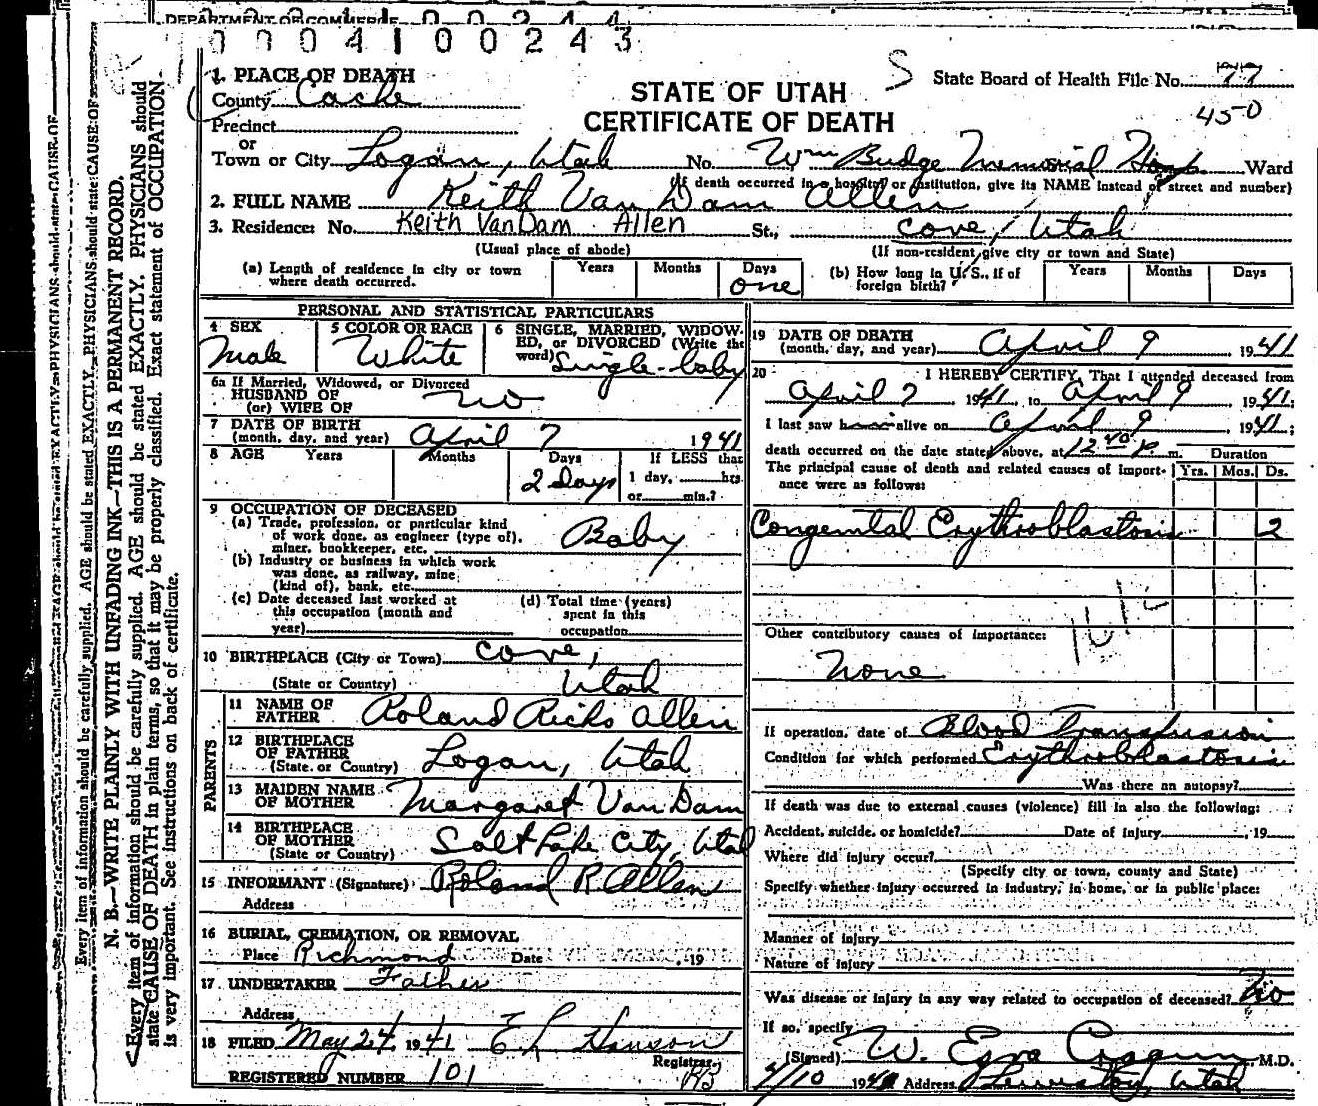 DEPARTMENT OF COMMERCE
0 0 0 4 1 0 0 2 4 3
1. PLACE OF DEATH
County Cache
Precinct
or
Town or City Logan, Utah No. Wm Budge Memorial Hosp. Ward
(If death occurred in a hospital or institution, give its NAME instead of street and number)
STATE OF UTAH
CERTIFICATE OF DEATH
S
State Board of Health File No. 77
45-0
2. FULL NAME Keith Van Dam Allen
3. Residence: No. Keith VanDam Allen St., Cove, Utah
(Usual place of abode) (If non-resident, give city or town and State)
(a) Length of residence in city or town where death occurred. Years Months Days one
(b) How long in U. S., if of foreign birth? Years Months Days
PERSONAL AND STATISTICAL PARTICULARS
4 SEX Male
5 COLOR OR RACE White
6 SINGLE, MARRIED, WIDOW-
ED, or DIVORCED (Write the
word) Single-baby
6a If Married, Widowed, or Divorced
HUSBAND OF
(or) WIFE OF no
7 DATE OF BIRTH
(month, day, and year) April 7 1941
8 AGE Years Months Days 2 days If LESS than
1 day, hrs.
or min.?
9 OCCUPATION OF DECEASED
(a) Trade, profession, or particular kind
of work done, as engineer (type of),
miner, bookkeeper, etc. Baby
(b) Industry or business in which work
was done, as railway, mine
(kind of), bank, etc.
(c) Date deceased last worked at
this occupation (month and
year)
(d) Total time (years)
spent in this
occupation
10 BIRTHPLACE (City or Town) Cove,
(State or Country) Utah
PARENTS
11 NAME OF
FATHER Roland Ricks Allen
12 BIRTHPLACE
OF FATHER
(State or Country) Logan, Utah
13 MAIDEN NAME
OF MOTHER Margaret Van Dam
14 BIRTHPLACE
OF MOTHER
(State or Country) Salt Lake City, Utah
15 INFORMANT (Signature) Roland R Allen
Address
16 BURIAL, CREMATION, OR REMOVAL
Place Richmond Date , 19
17 UNDERTAKER Father
Address
18 FILED May 24, 1941 E L Hanson
Registrar.
REGISTERED NUMBER 101
19 DATE OF DEATH
(month, day, and year) April 9 1941
20 I HEREBY CERTIFY, That I attended deceased from
April 7 1941, to April 9 1941;
I last saw him alive on April 9 1941;
death occurred on the date stated above, at 12 40 P. m. Duration
The principal cause of death and related causes of import- Yrs. Mos. Ds.
ance were as follows:
Congenital Erythroblastosis 2
Other contributory causes of importance:
None
If operation, date of Blood Transfusion
Condition for which performed Erythroblastosis
Was there an autopsy?
If death was due to external causes (violence) fill in also the following:
Accident, suicide, or homicide? Date of injury , 19
Where did injury occur?
(Specify city or town, county and State)
Specify whether injury occurred in industry, in home, or in public place:
Manner of injury
Nature of injury
Was disease or injury in any way related to occupation of deceased? No
If so, specify
(Signed) W. Ezra Cragun, M.D.
4/10 1941 Address Lewiston, Utah
N. B.—WRITE PLAINLY WITH UNFADING INK—THIS IS A PERMANENT RECORD.
Every item of information should be carefully supplied. AGE should be stated EXACTLY. PHYSICIANS should
state CAUSE OF DEATH in plain terms, so that it may be properly classified. Exact statement of OCCUPATION
is very important. See instructions on back of certificate.